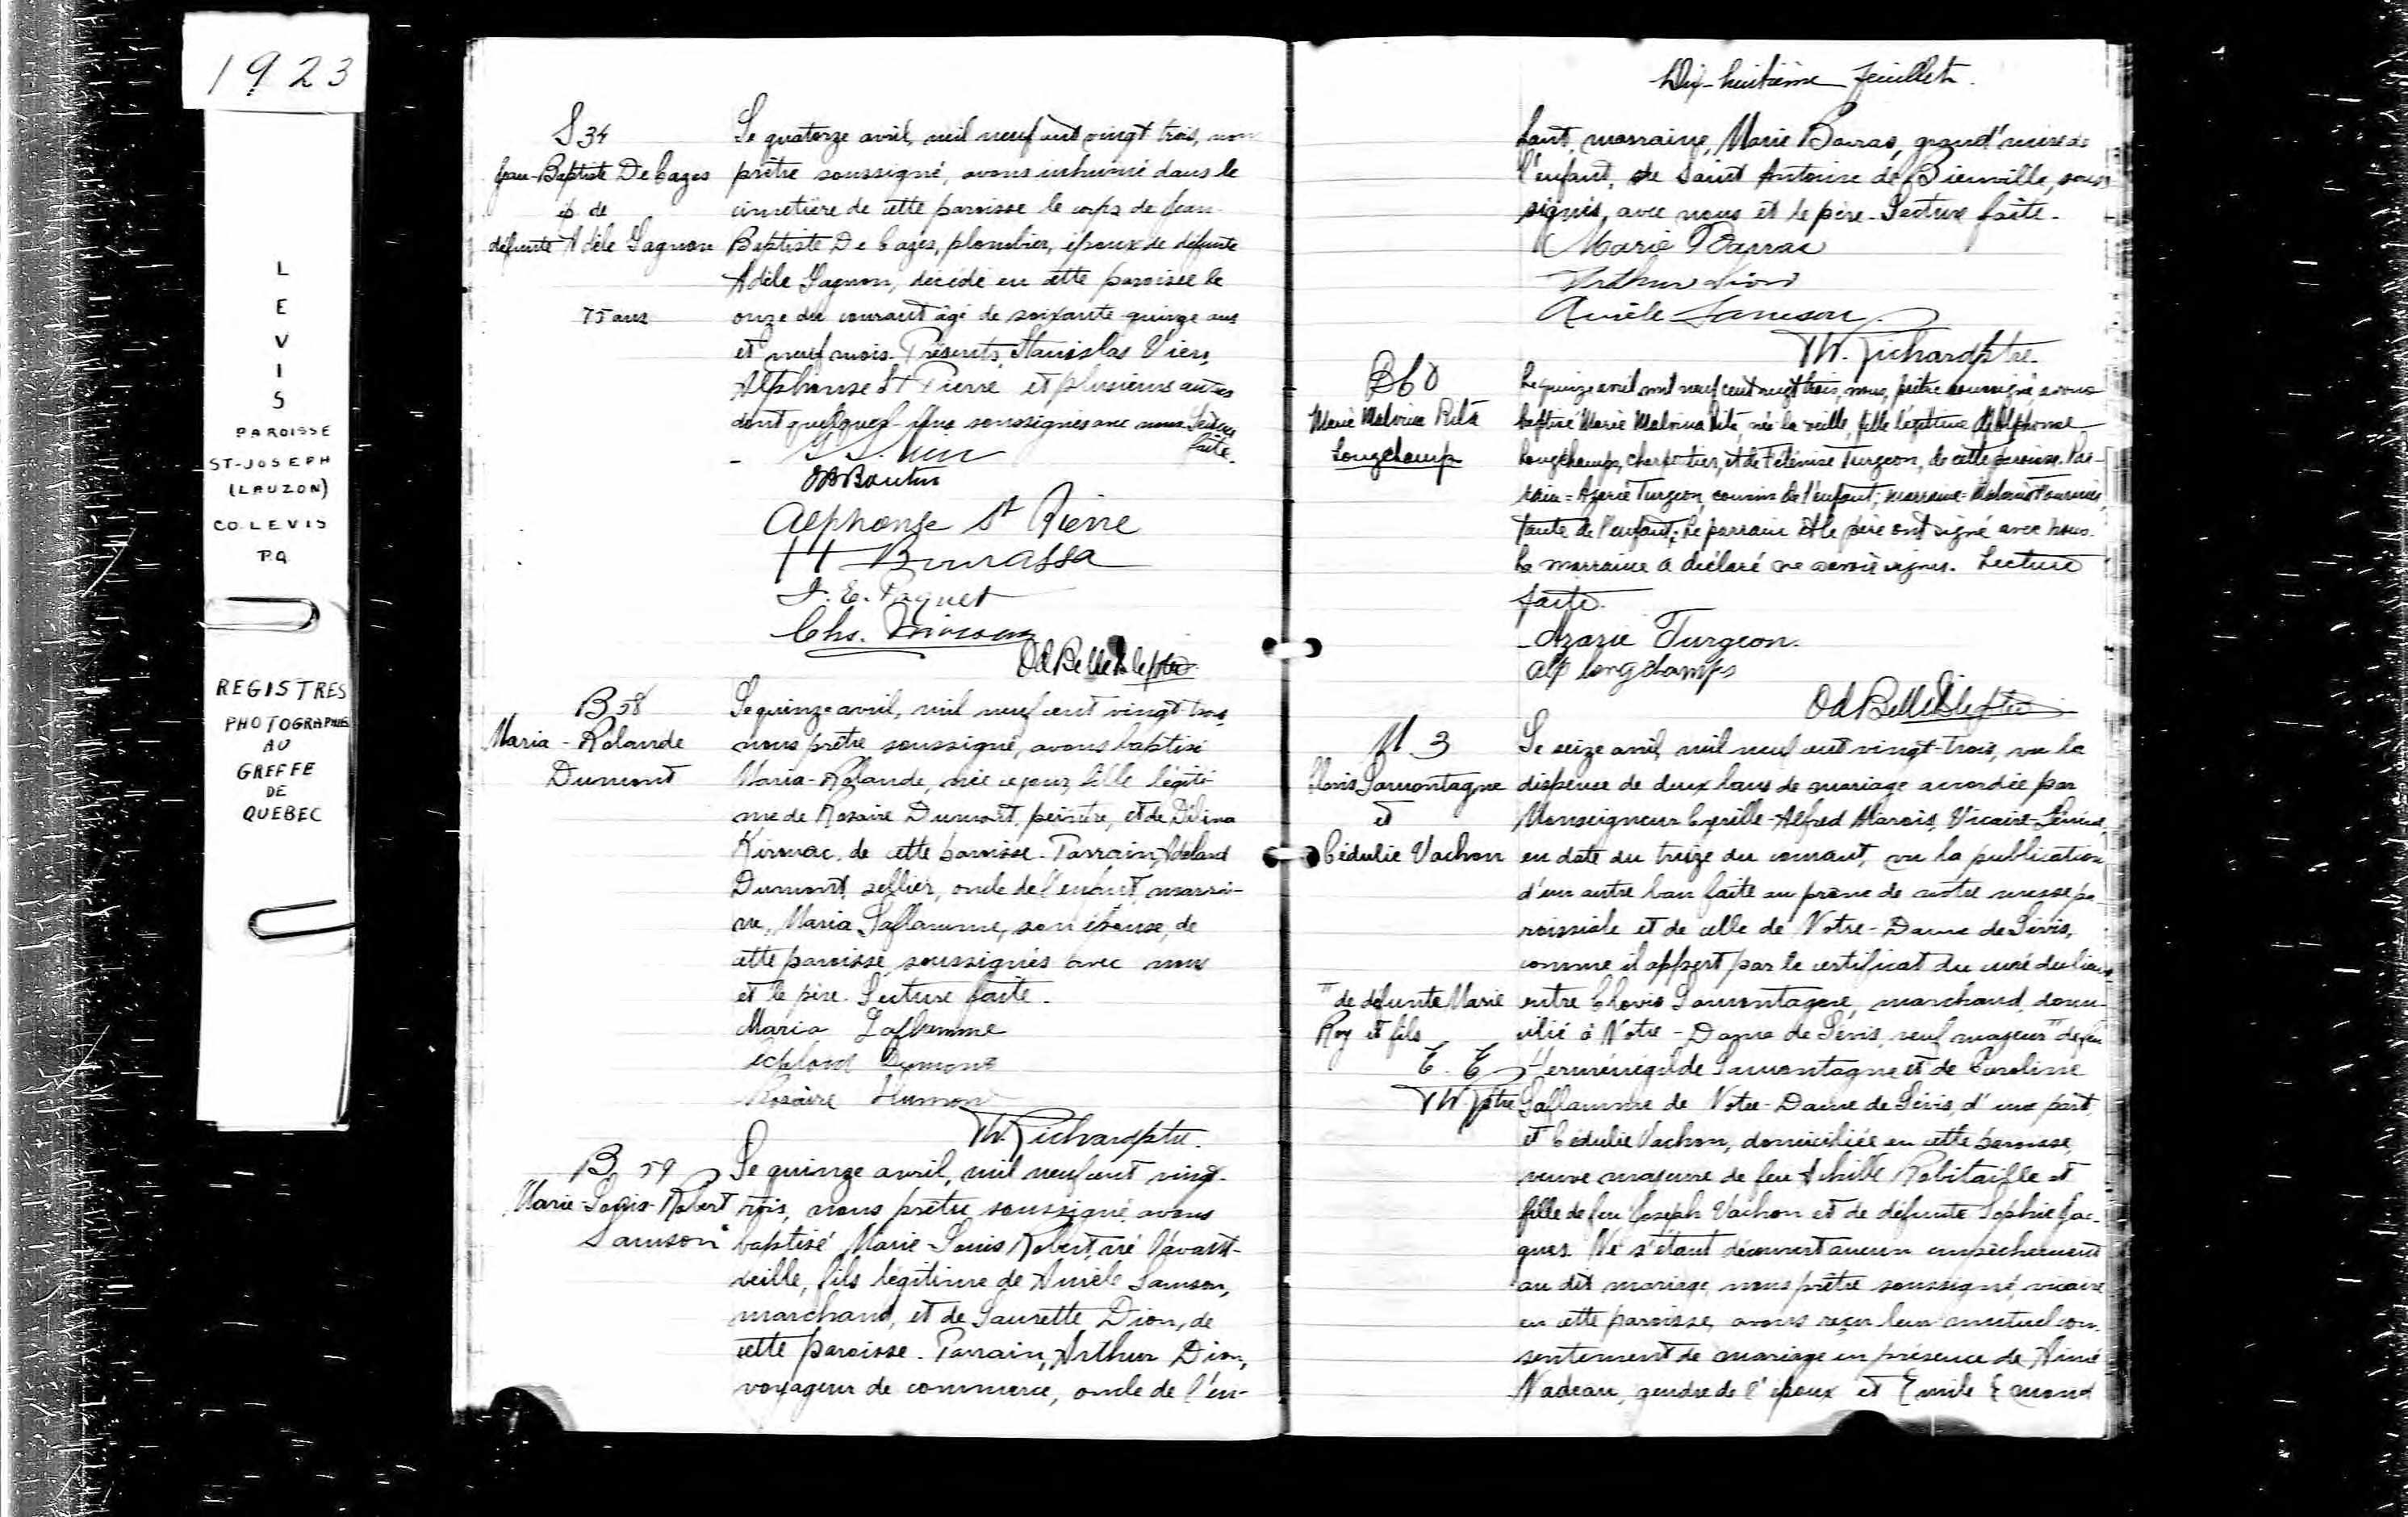 1923
L
E
V
I
S
PAROISSE
ST-JOSEPH
(LAUZON)
CO. LEVIS
P.Q
REGISTRES
PHOTOGRAPHIES
AU
GREFFE
DE
QUEBEC
S 34
Jean-Baptiste De Cazes
ép. de
défunte Adèle Gagnon
75 ans
Le quatorze avril, mil neuf cent vingt-trois, nous
prêtre soussigné, avons inhumé dans le
cimetière de cette paroisse le corps de Jean-
Baptiste De Cazes, plombier, époux de défunte
Adèle Gagnon, décédé en cette paroisse le
onze du courant âgé de soixante-quinze ans
et neuf mois. Présents, Stanislas Vien,
Alphonse St Pierre et plusieurs autres
dont quelques-uns soussignés avec nous. Lecture
faite.
Alphonse St Pierre
H Bourassa
J. E. Paquet
Chs.
Od Belleisle ptre
B 58
Maria-Rolande
Dumont
Le quinze avril, mil neuf cent vingt-trois,
nous prêtre soussigné, avons baptisé
Maria-Rolande, née ce jour, fille légiti-
me de Rosaire Dumont, peintre, et de Délina
Kirouac, de cette paroisse. Parrain, Adélard
Dumont, sellier, oncle de l'enfant, marrai-
ne, Maria Laflamme, son épouse, de
cette paroisse, soussignés avec nous
et le père. Lecture faite.
Maria Laflamme
Adelard Dumont
Rosaire Dumont
Th. Richard ptre.
B 59
Marie-Louis-Robert
Samson
Le quinze avril, mil neuf cent vingt-
trois, nous prêtre soussigné avons
baptisé Marie-Louis Robert, né l'avant-
veille, fils légitime de Aurèle Samson,
marchand, et de Laurette Dion, de
cette paroisse. Parrain, Arthur Dion,
voyageur de commerce, oncle de l'en-
Dix-huitième feuillet.
fant, marraine, Marie Barras, grand'mère de
l'enfant, de Saint Antoine de Bienville, sous-
signés, avec nous et le père. Lecture faite.
Marie Barras
Arthur Dion
Aurèle Samson
Th. Richard ptre.
B 60
Marie Malvina Rita
Longchamp
Le quinze avril mil neuf cent vingt trois, nous, prêtre soussigné avons
baptisé Marie Malvina Rita, née la veille, fille légitime de Alphonse
Longchamps, charpentier, et de Félénise Turgeon, de cette paroisse. Par-
rain = Azarie Turgeon, cousin de l'enfant; marraine = Malvina Fournier,
tante de l'enfant; Le parrain et le père ont signé avec nous.
La marraine a déclaré ne savoir signer. Lecture
faite.
Azarie Turgeon.
Alp Longchamps
Od Belleisle ptre
M. 3
Clovis Lamontagne
et
Cédulie Vachon
" de défunte Marie
Roy et fils
E. E.
Th. R. ptre
Le seize avril, mil neuf cent vingt-trois, vu la
dispense de deux bans de mariage accordée par
Monseigneur Cyrille-Alfred Marois, Vicaire-Général,
en date du treize du courant, vu la publication
d'un autre ban faite au prône de notre messe pa-
roissiale et de celle de Notre-Dame de Lévis,
comme il appert par le certificat du curé du lieu
entre Clovis Lamontagne, marchand, domi-
cilié à Notre-Dame de Lévis, veuf majeur " de feu
Herménégilde Lamontagne et de Caroline
Laflamme de Notre-Dame de Lévis, d'une part,
et Cédulie Vachon, domiciliée en cette paroisse,
veuve majeure de feu Achille Robitaille et
fille de feu Joseph Vachon et de défunte Sophie Jac-
ques. Ne s'étant découvert aucun empêchement
au dit mariage, nous prêtre soussigné, vicaire
en cette paroisse, avons reçu leur mutuel con-
sentement de mariage en présence de Aimé
Nadeau, gendre de l'époux et Emile Emond